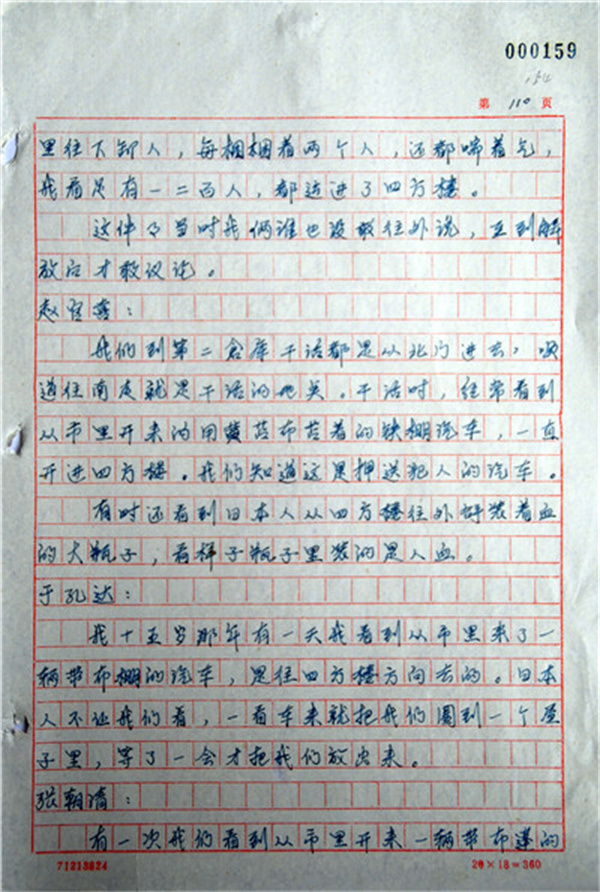 000159
154
第 110 页
里往下卸人，每捆捆着两个人，还都喘着气，
我看足有一二百人，都运进了四方楼。
这件事当时我俩谁也没敢往外说，直到解
放后才敢议论。
赵
我们到第二仓库干活都是从北门进去，顺
道往南走就是干活的地关。干活时，经常看到
从市里开来的用黄苫布苫着的铁棚汽车，一直
开进四方楼。我们知道这是押送犯人的汽车。
有时还看到日本人从四方楼往外拜装着血
的大瓶子，看样子瓶子里装的是人血。
于孔达：
我十五岁那年有一天我看到从市里来了一
辆带布棚的汽车，是往四方楼方向去的。日本
人不让我们看，一看车来就把我们圈到一个屋
子里，等了一会才把我们放出来。
张朝清：
有一次我们看到从市里开来一辆带布蓬的
71213824
20×18=360